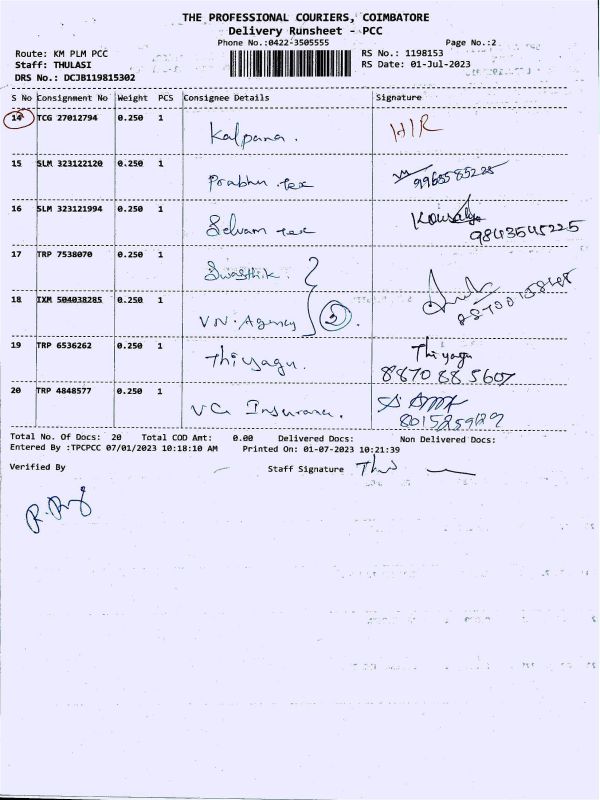 THE PROFESSIONAL COURIERS, COIMBATORE
Delivery Runsheet - PCC
Phone No.:0422-3505555 Page No.:2
Route: KM PLM PCC RS No.: 1198153
Staff: THULASI RS Date: 01-Jul-2023
DRS No.: DCJB119815302
S No Consignment No Weight PCS Consignee Details Signature
14 TCG 27012794 0.250 1 Kalpana. HIR
15 SLM 323122120 0.250 1 Prabhu tex 9965585225
16 SLM 323121994 0.250 1 Selvam tex 9843545225
17 TRP 7538070 0.250 1 Swasthik
18 IXM 504038285 0.250 1 VN. Agency 2
19 TRP 6536262 0.250 1 Thiyagu. Thiyagu
8870885607
20 TRP 4848577 0.250 1 VG Insurance.
Total No. Of Docs: 20 Total COD Amt: 0.00 Delivered Docs: Non Delivered Docs:
Entered By :TPCPCC 07/01/2023 10:18:10 AM Printed On: 01-07-2023 10:21:39
Verified By Staff Signature